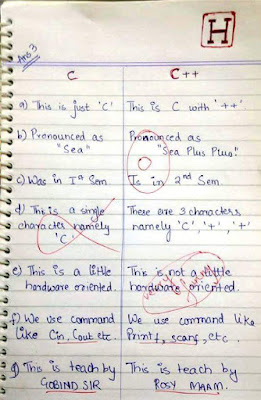 H
Ans 3
C C++
a) This is just 'C' This is C with '++'
b) Pronounced as Pronounced as
"Sea" "Sea Plus Plus"
c) Was in Ist Sem Is in 2nd Sem
d) This is a single These are 3 characters
character namely namely 'C', '+', '+'
'C'
e) This is a little This is not a little
hardware oriented. hardware oriented.
f) We use command We use command like
like Cin, Cout etc. Printf, scanf, etc.
g) This is teach by This is teach by
GOBIND SIR ROSY MAAM.